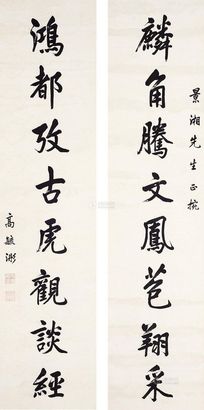 景湘先生正捥
麟角騰文鳳苞翔采
鴻都攷古虎觀談經
高毓浵